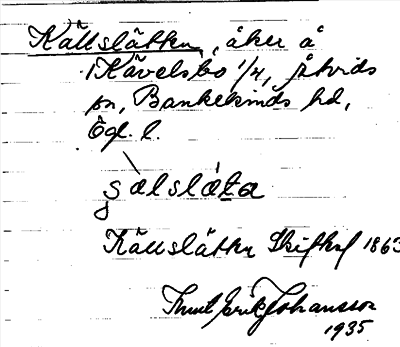 Källslätten, åker å
Kävelsbo 1/4, Åtvids
sn, Bankekinds hd,
Ögl. l.
sælslæta
Källslätten Skifthl 1863
Knut Erik Johansson
1935